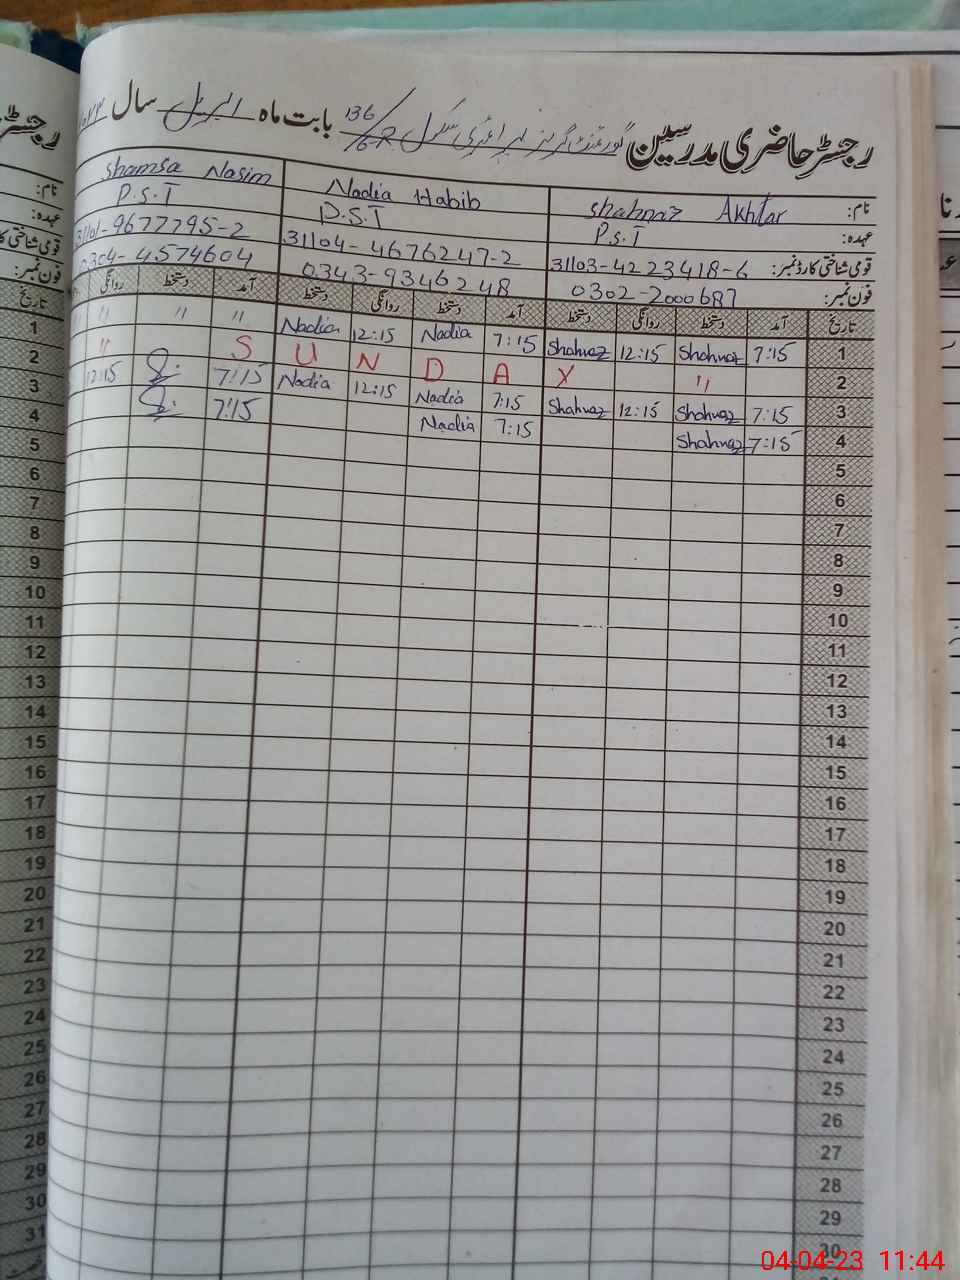 رجسٹر حاضری مدرسین گورنمنٹ گرلز پرائمری سکول 136/6R بابت ماہ اپریل سال
نام: Shahnaz Akhtar Nadia Habib Shamsa Nasim
عہدہ: P.S.T P.S.T P.S.T
قومی شناختی کارڈ نمبر: 31103-4223418-6 31104-4676247-2 31101-9677795-2
فون نمبر: 0302-2000687 0343-9346248 0304-4574604
تاریخ آمد دستخط روانگی دستخط آمد دستخط روانگی دستخط آمد دستخط روانگی
1 7:15 Shahnaz 12:15 Shahnaz 7:15 Nadia 12:15 Nadia " " "
2 S U N D A Y "
3 7:15 Shahnaz 12:15 Shahnaz 7:15 Nadia 12:15 Nadia 7:15 12:15
4 7:15 Shahnaz 7:15 Nadia 7:15
5
6
7
8
9
10
11
12
13
14
15
16
17
18
19
20
21
22
23
24
25
26
27
28
29
30
04-04-23 11:44